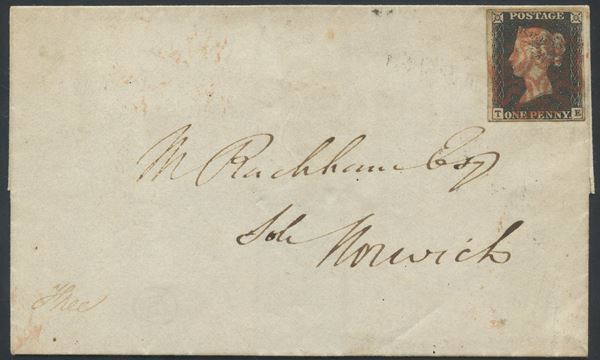 POSTAGE
T E
ONE PENNY
M Rackham Esq
Solr
Norwich